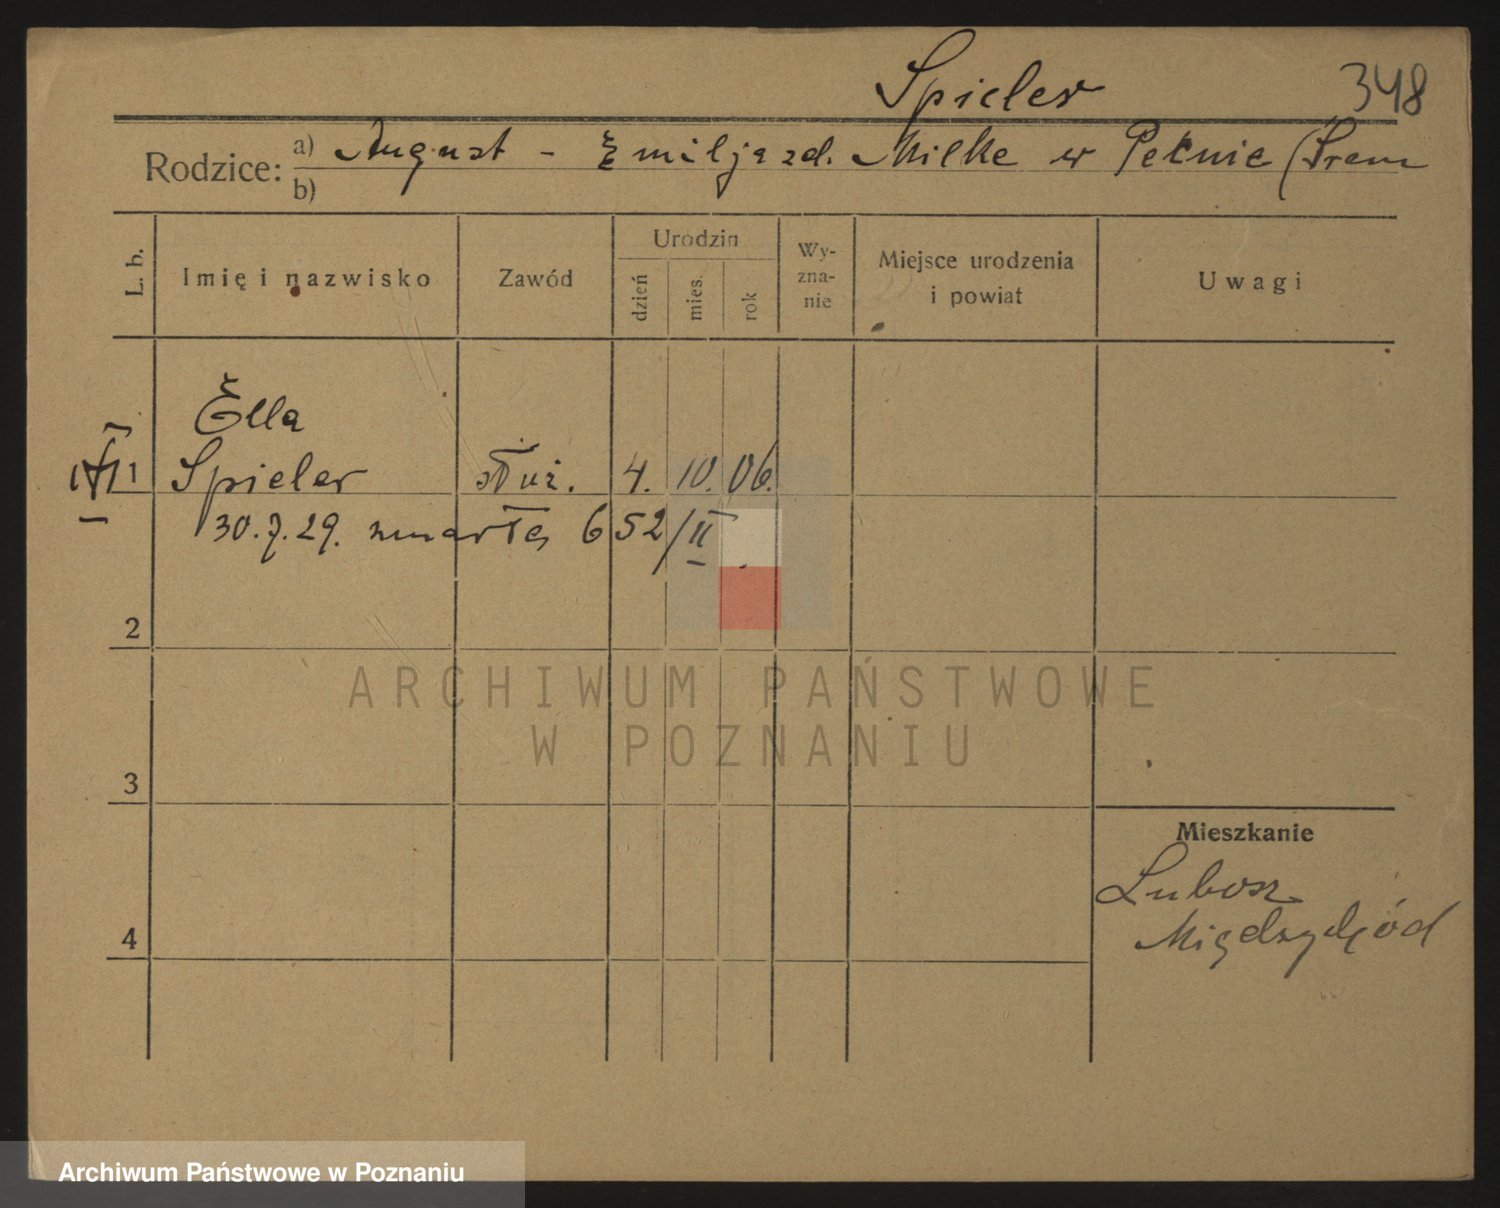 Spieler 348
Rodzice: a) August - Emilja zd. Milke w Pełnie (Śrem
b)
L. b. Imię i nazwisko Zawód Urodzin dzień mies. rok Wy-zna-nie Miejsce urodzenia i powiat Uwagi
Ella
1 Spieler służ. 4. 10. 06.
30.7.29. zmarła 652/II
2
3
4
Mieszkanie
Lubosz
Międzychód
ARCHIWUM PAŃSTWOWE
W POZNANIU
Archiwum Państwowe w Poznaniu